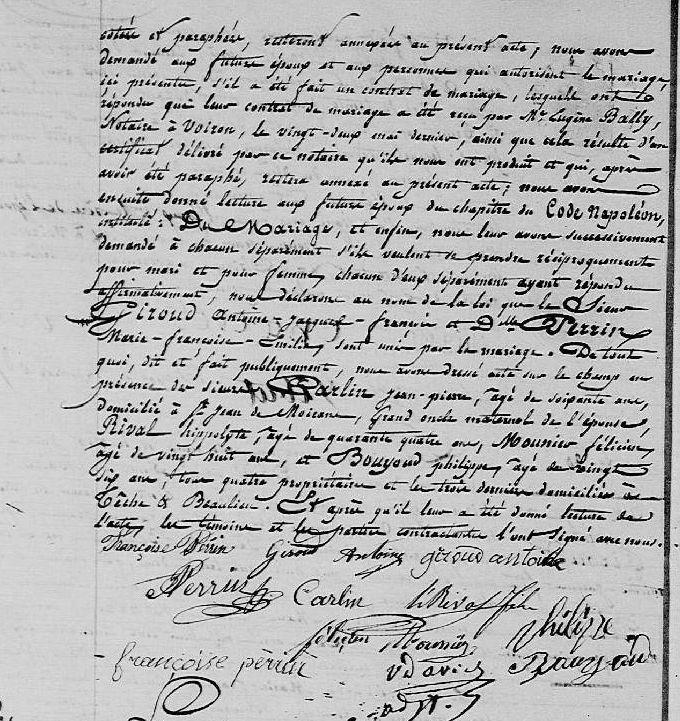 cotées et paraphées, resteront annexées au présent acte; nous avons
demandé aux futurs époux et aux personnes qui autorisent le mariage,
ici présentes, s'il a été fait un contrat de mariage, lesquels ont
répondu que leur contrat de mariage a été reçu par Me Eugène Bally,
Notaire à Voiron, le vingt-deux mai dernier, ainsi que cela résulte d'un
certificat délivré par ce notaire qu'ils nous ont produit et qui, après
avoir été paraphé, restera annexé au présent acte; nous avons
ensuite donné lecture aux futurs époux du chapitre du Code Napoléon,
intitulé: Du Mariage, et enfin, nous leur avons successivement
demandé à chacun séparément s'ils veulent se prendre réciproquement
pour mari et pour femme, chacun d'eux séparément ayant répondu
affirmativement, nous déclarons au nom de la loi que le Sieur
Giroud Antoine-Jacques-françois et Dlle Perrin
Marie-françoise-Emilie, sont unis par le mariage. De tout
quoi, dit et fait publiquement, nous avons dressé acte sur le champ en
présence des sieurs Carlin jean-pierre, âgé de soixante ans,
domicilié à St Jean de Moirans, grand oncle maternel de l'épouse,
Rival hippolyte, âgé de quarante quatre ans, Mounier félicien,
âgé de vingt huit ans, et Bouyoud philippe, âgé de vingt
six ans, tous quatre propriétaires et les trois derniers domiciliés à
Têche & Beaulieu. Et après qu'il leur a été donné lecture de
l'acte, les témoins et les parties contractantes l'ont signé avec nous.
Françoise Perrin Giroud Antoine giroud antoine
Perrin Carlin h Rival
félicien Mounier philippe
françoise perrin Bouyoud
adjt.